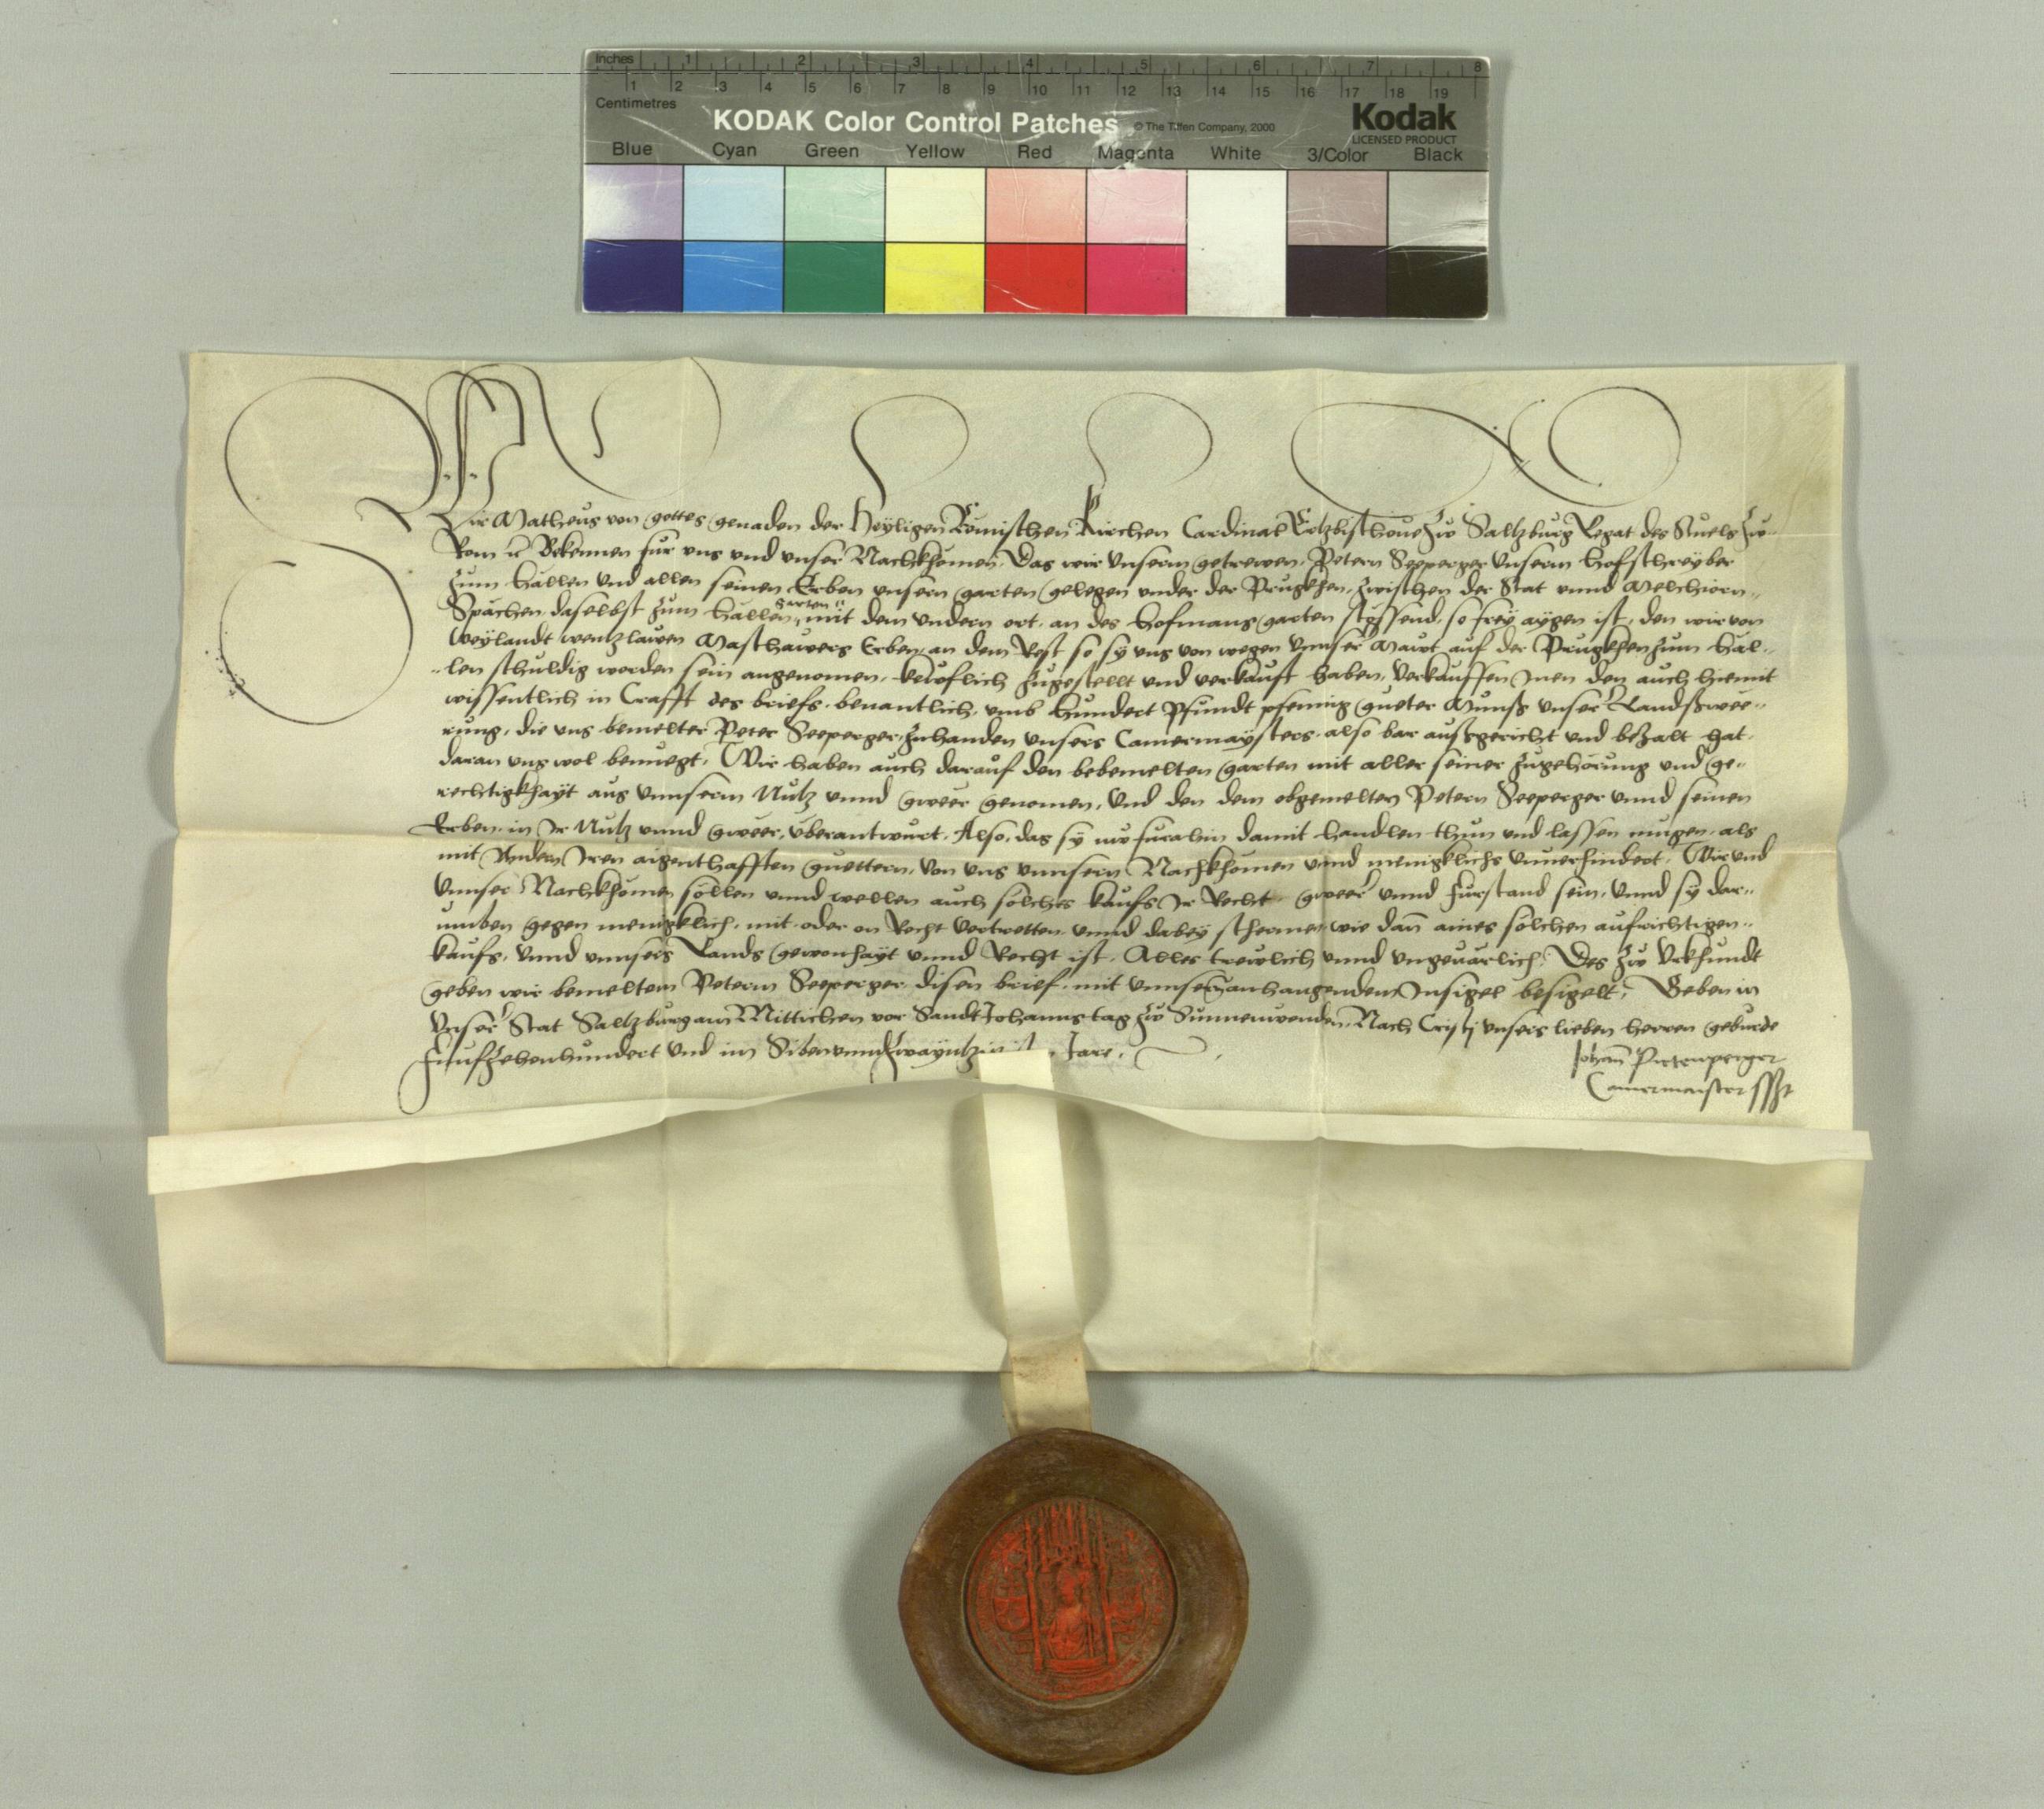 Inches 1 2 3 4 5 6 7 8
1 2 3 4 5 6 7 8 9 10 11 12 13 14 15 16 17 18 19
Centimetres
KODAK Color Control Patches © The Tiffen Company, 2000 Kodak
LICENSED PRODUCT
Blue Cyan Green Yellow Red Magenta White 3/Color Black
Wir Matheus von gottes genaden der Heyligen Römischen Kirchen Cardinal Ertzbischoue zw Saltzburg Legat des Stuels zw
Rom etc Bekennen für vns vnd vnser Nachkhomen, Das wir vnserm getrewen Petern Seeperger vnserm Hofschreyber
zum Hällen vnd allen seinen Erben vnsern garten gelegen vnder der Prugkhen, zwischen der Stat vnnd Melchiorn
Spächen daselbst zum Hällen garten mit dem vndern ort, an des Hofmans garten stossend, so frey aygen ist, den wir von
Weylandt Wentzlawen Maschawers Erben, an dem Rest so sy vns von wegen vnnser Mawt auf der Prugkhen zum Häl-
len schuldig worden sein angenomen, kewflich zugestellt vnd verkauft haben, Verkauffen Inen den auch hiemit
wissentlich in Crafft des briefs, benantlich, vmb Hundert Pfundt pfening gueter Münß vnser Landßwee-
rung, die vns bemelter Peter Seeperger, zuhanden vnsers Camermaysters, also bar außgericht vnd bezalt hat,
daran vns wol benuegt, Wir haben auch darauf den bebemelten garten mit aller seiner zugehörung vnd ge-
rechtigkhayt aus vnnserm Nutz vnnd gweer genomen, Vnd den dem obgemelten Petern Seeperger vnnd seinen
Erben, in Ir Nutz vnnd gweer, überantwurt, Also, das sy nw füralin damit handlen thun vnd lassen mugen, als
mit Andern Iren aigenthafften guettern, von vns vnnsern Nachkhomen vnnd menigklichs vnuerhindert, Wir vnd
Vnnser Nachkhomen, sollen vnnd wellen auch solches kaufs Ir Recht gweer vnnd fürstand sein, Vnnd sy dar-
umben gegen menigklich, mit oder on Recht Vertretten, vnnd dabey schermen, wie dan̄ aines solchen aufrichtigen
kaufs, vnnd vnnsers Lands gewonhayt vnnd Recht ist, Alles trewlich vnnd vngeuärlich, Des zw Vrkhundt
geben wir bemeltem Petern Seeperger, disen brief, mit vnnserm anhangendem Insigel besigelt, Geben in
Vnser Stat Saltzburg am Mittichen vor Sandt Johanns tag zw Sunnenwenden, Nach Cristj vnsers lieben herren geburde
Fünfzehenhundert Vnd im Sibenvnndzwayntzi Jare,
Johan̄ Pietenperger
Camermaister